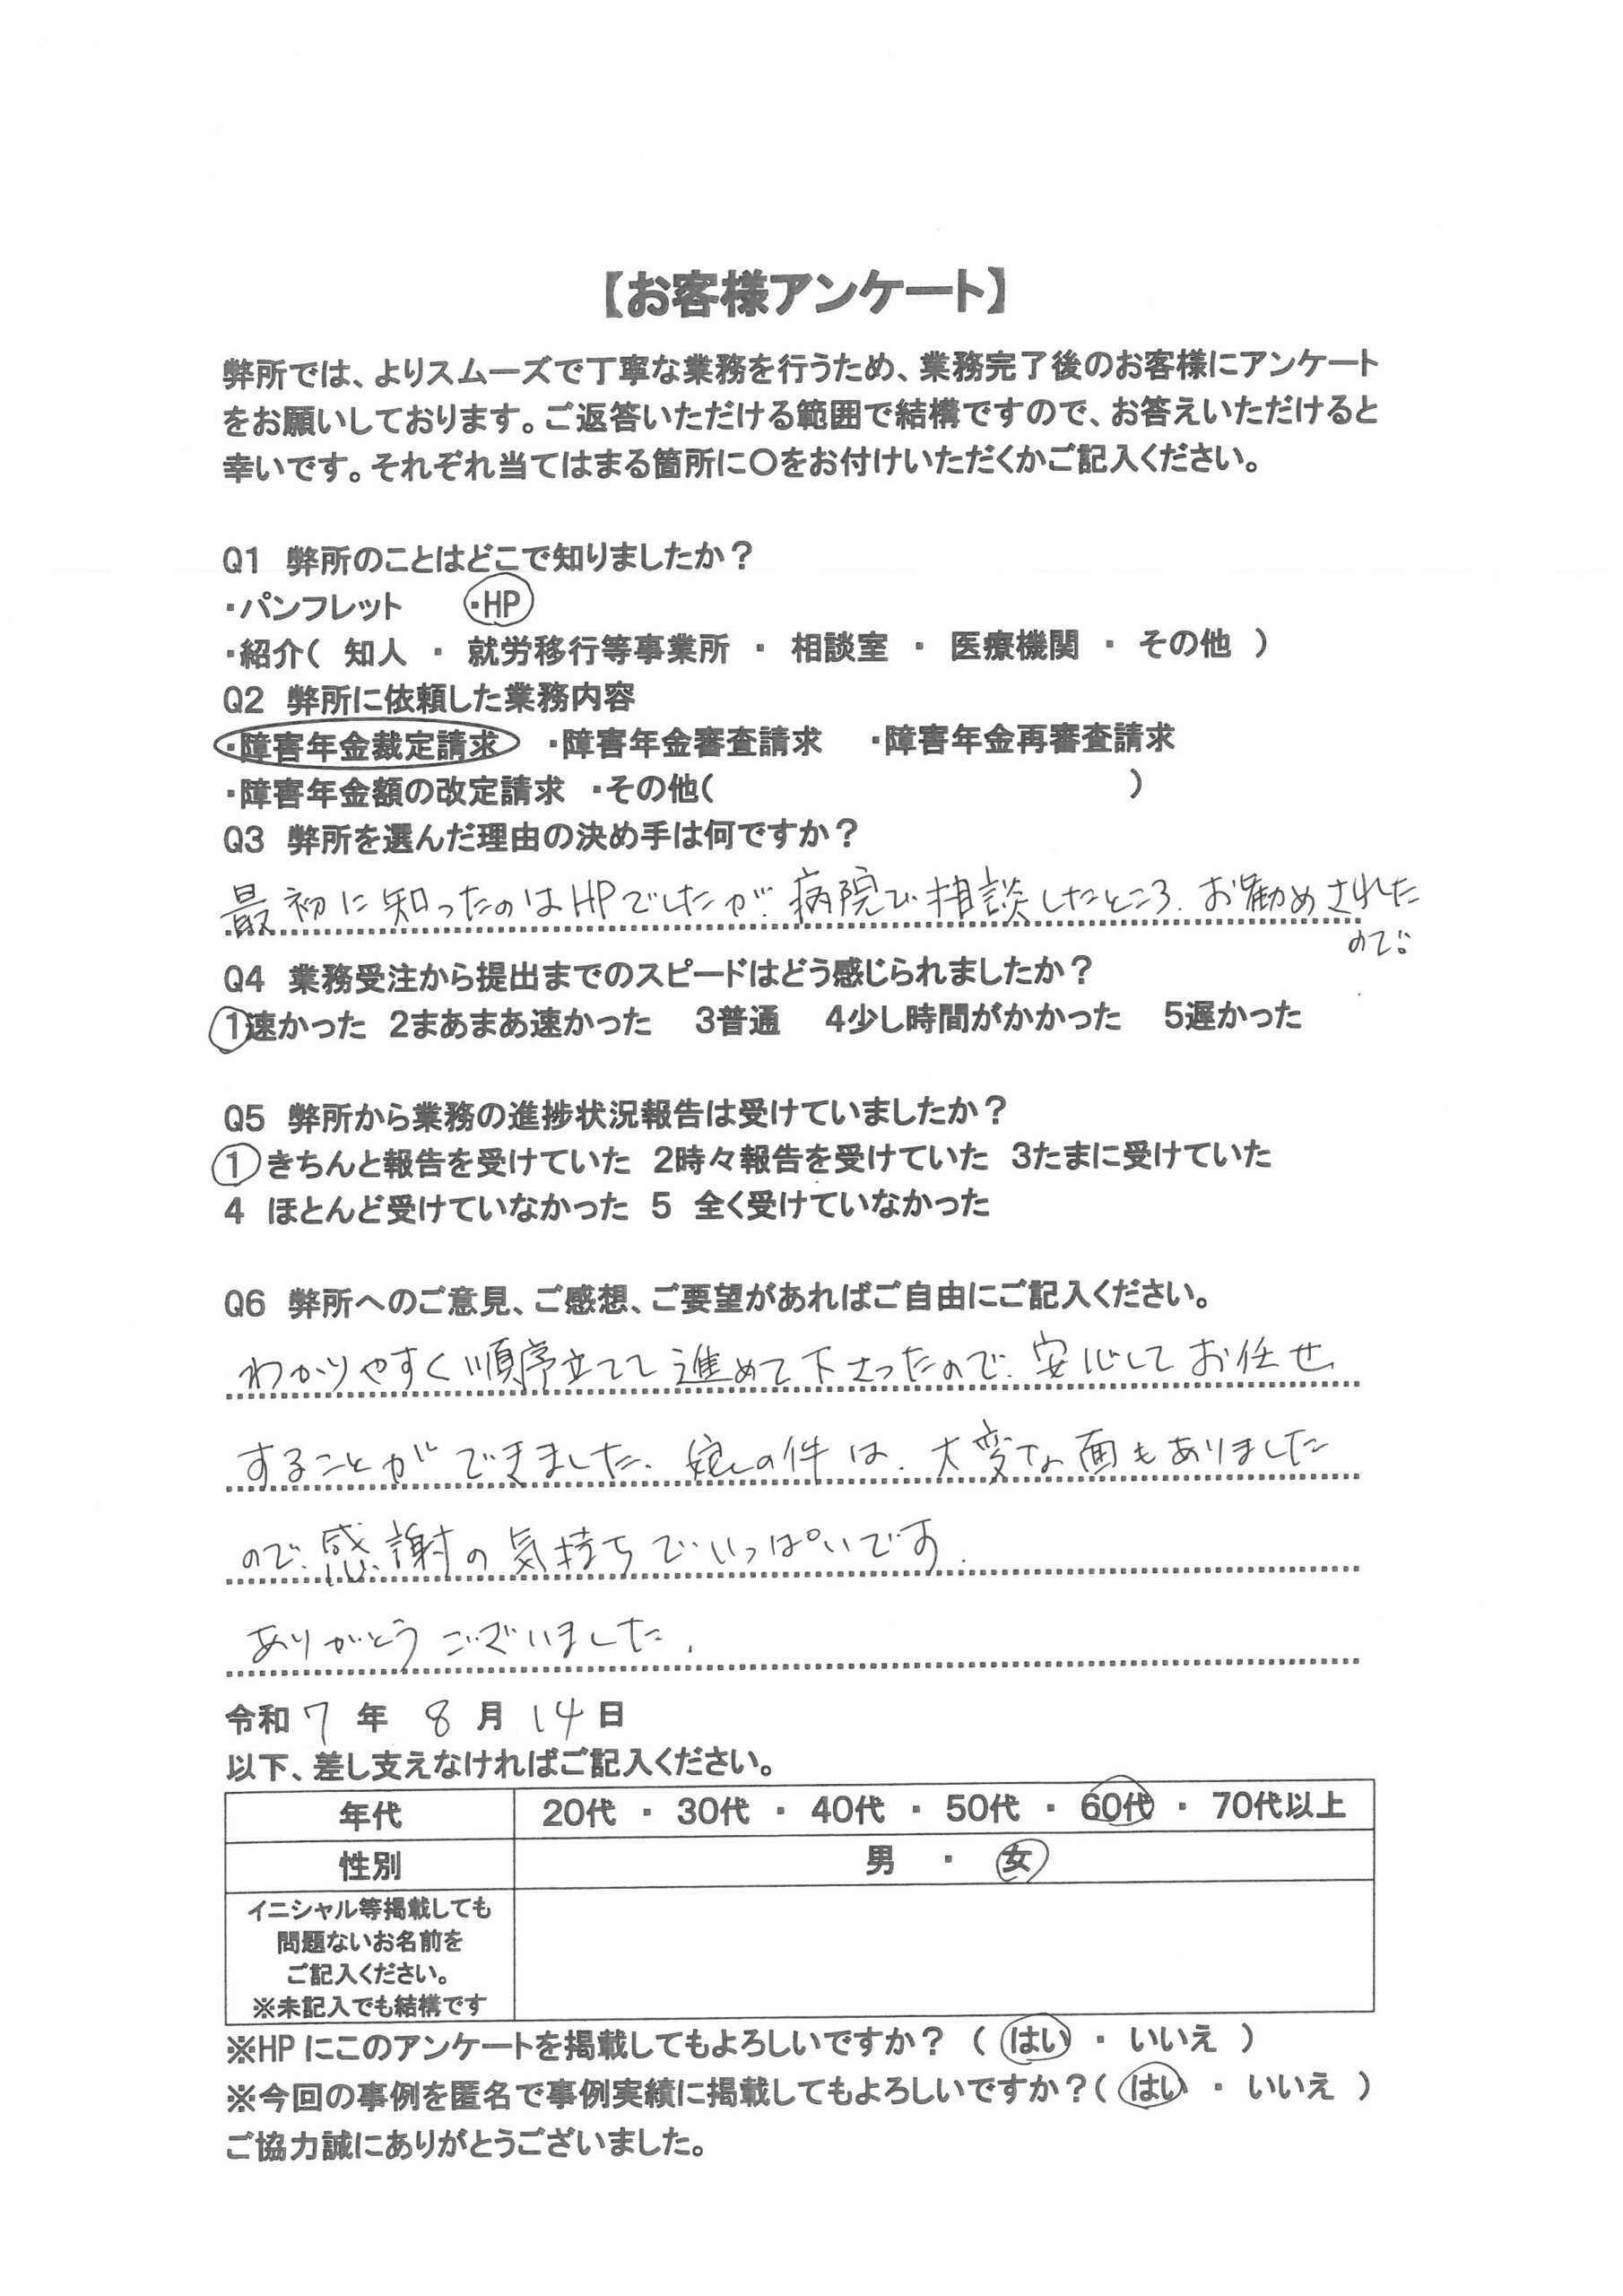 【お客様アンケート】
弊所では、よりスムーズで丁寧な業務を行うため、業務完了後のお客様にアンケート
をお願いしております。ご返答いただける範囲で結構ですので、お答えいただけると
幸いです。それぞれ当てはまる箇所に○をお付けいただくかご記入ください。
Q1 弊所のことはどこで知りましたか？
・パンフレット ・HP
・紹介（ 知人 ・ 就労移行等事業所 ・ 相談室 ・ 医療機関 ・ その他 ）
Q2 弊所に依頼した業務内容
・障害年金裁定請求 ・障害年金審査請求 ・障害年金再審査請求
・障害年金額の改定請求 ・その他（ ）
Q3 弊所を選んだ理由の決め手は何ですか？
最初に知ったのはHPでしたが、病院で相談したところ、お勧めされた
ので。
Q4 業務受注から提出までのスピードはどう感じられましたか？
1速かった 2まあまあ速かった 3普通 4少し時間がかかった 5遅かった
Q5 弊所から業務の進捗状況報告は受けていましたか？
1 きちんと報告を受けていた 2時々報告を受けていた 3たまに受けていた
4 ほとんど受けていなかった 5 全く受けていなかった
Q6 弊所へのご意見、ご感想、ご要望があればご自由にご記入ください。
わかりやすく順序立てて進めて下さったので、安心してお任せ
することができました。娘の件は、大変な面もありました
ので、感謝の気持ちでいっぱいです。
ありがとうございました。
令和 7 年 8 月 14 日
以下、差し支えなければご記入ください。
年代 20代 ・ 30代 ・ 40代 ・ 50代 ・ 60代 ・ 70代以上
性別 男 ・ 女
イニシャル等掲載しても
問題ないお名前を
ご記入ください。
※未記入でも結構です
※HPにこのアンケートを掲載してもよろしいですか？（ はい ・ いいえ ）
※今回の事例を匿名で事例実績に掲載してもよろしいですか？（ はい ・ いいえ ）
ご協力誠にありがとうございました。